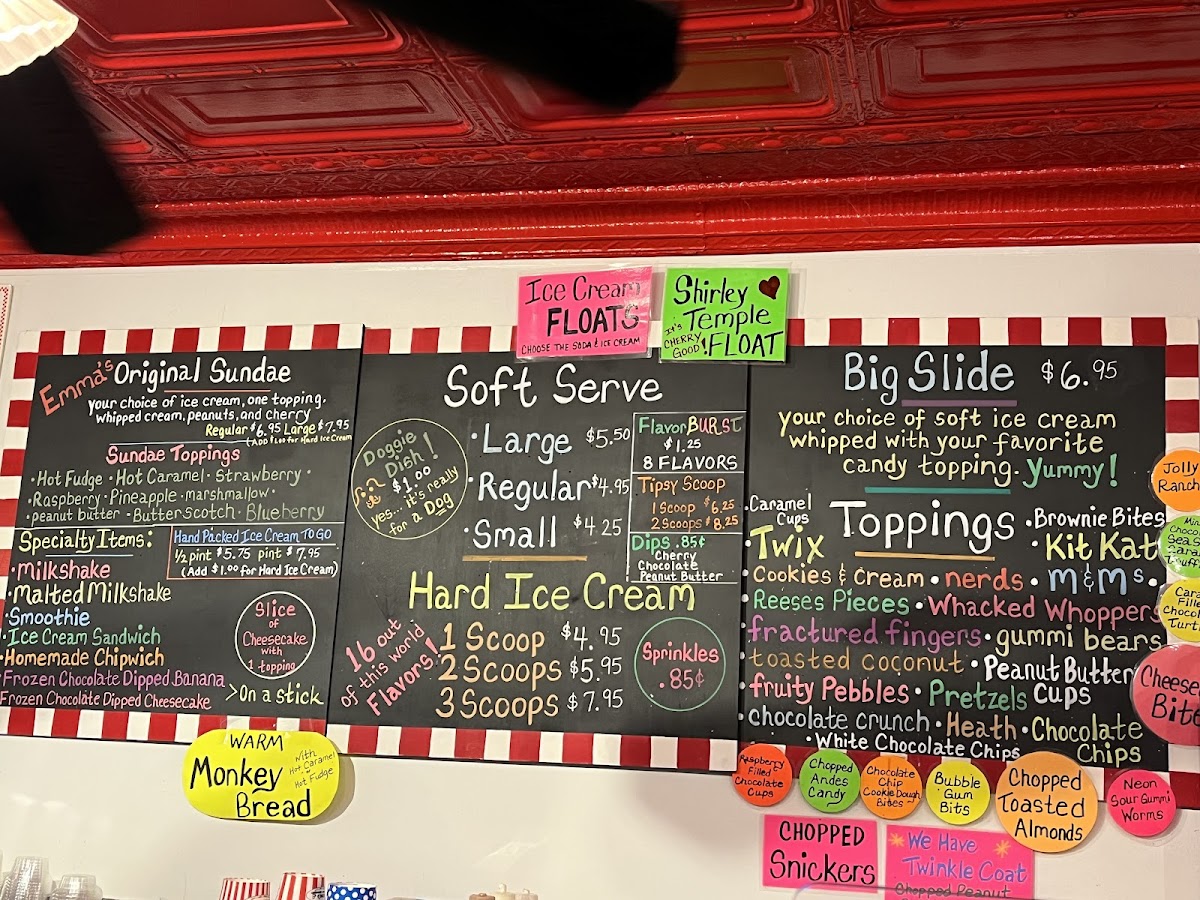 Ice Cream
FLOATS
CHOOSE THE SODA & ICE CREAM
Shirley
Temple
It's
CHERRY
GOOD!
FLOAT
Emma's Original Sundae
your choice of ice cream, one topping,
whipped cream, peanuts, and cherry
Regular $6.95 Large $7.95
(Add $1.00 for Hard Ice Cream
Sundae Toppings
· Hot Fudge · Hot Caramel · Strawberry ·
· Raspberry · Pineapple · marshmallow ·
· peanut butter · Butterscotch · Blueberry
Specialty Items:
· milkshake
· Malted Milkshake
· Smoothie
· Ice Cream Sandwich
· Homemade Chipwich
· Frozen Chocolate Dipped Banana
Frozen Chocolate Dipped Cheesecake
>On a stick
Hand Packed Ice Cream TO GO
½ pint $5.75 pint $7.95
(Add $1.00 for Hard Ice Cream)
Slice
of
Cheesecake
with
1 topping
Soft Serve
Doggie
Dish!
$1.00
yes... it's really
for a Dog
· Large $5.50
· Regular $4.95
· Small $4.25
Flavor BURST
$1.25
8 FLAVORS
Tipsy Scoop
1 Scoop $6.25
2 Scoops $8.25
Dips .85¢
Cherry
Chocolate
Peanut Butter
Hard Ice Cream
16 out
of this world
Flavors!
1 Scoop $4.95
2 Scoops $5.95
3 Scoops $7.95
Sprinkles
.85¢
Big Slide $6.95
your choice of soft ice cream
whipped with your favorite
candy topping. Yummy!
Toppings
· Caramel
Cups
· Brownie Bites
· Twix
· Kit Kat
· Cookies & Cream · nerds · M&M's ·
· Reeses Pieces · Whacked Whoppers
· fractured fingers · gummi bears
· toasted coconut · Peanut Butter
Cups
· fruity Pebbles · Pretzels
· chocolate crunch · Heath · Chocolate
Chips
· White Chocolate Chips
Jolly
Ranch
Cheese
Bite
WARM
Monkey
Bread
with
Hot Caramel
or
Hot Fudge
Raspberry
Filled
Chocolate
Cups
Chopped
Andes
Candy
Chocolate
Chip
Cookie Dough
Bites
Bubble
Gum
Bits
Chopped
Toasted
Almonds
Neon
Sour Gummi
Worms
CHOPPED
Snickers
We Have
Twinkle Coat
Chopped Peanut